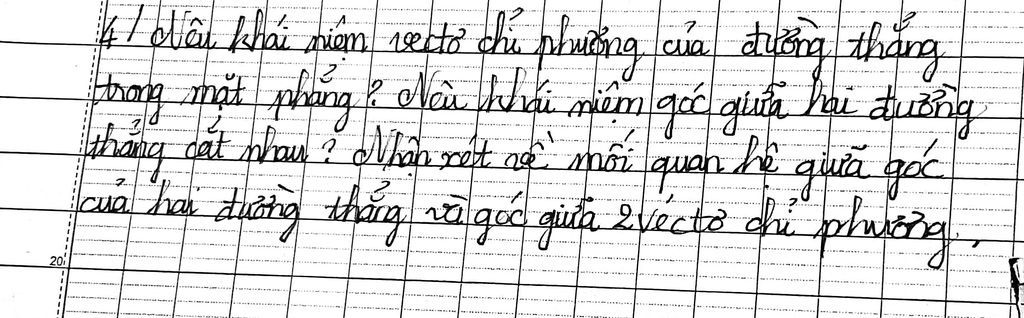 4/ Nêu khái niệm vectơ chỉ phương của đường thẳng
trong mặt phẳng? Nêu khái niệm góc giữa hai đường
thẳng cắt nhau? Nhận xét về mối quan hệ giữa góc
của hai đường thẳng và góc giữa 2 véctơ chỉ phương.
20